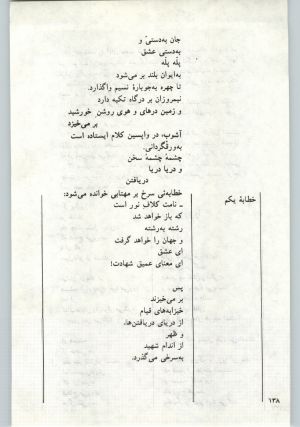 جان به‌دستی و
به‌دستی عشق
پله پله
به‌ایوان بلند بر می‌شود
تا چهره به‌جوبارهٔ نسیم واگذارد.
نیمروزان بر درگاه تکیه دارد
و زمین درهای و هوی روشن خورشید
بر می‌خیزد
آشوب، در واپسین کلام ایستاده است
به‌ورقگردانی.
چشمهٔ چشمهٔ سخن
و دریا دریا
دریافتن
خطابهٔ یکم
خطابه‌ئی سرخ بر مهتابی خوانده می‌شود:
ـ نامت کلاف نور است
که باز خواهد شد
رشته به‌رشته
و جهان را خواهد گرفت
ای عشق
ای معنای عمیق شهادت!
پس
بر می‌خیزند
خیزابه‌های قیام
از دریای دریافتن‌ها.
و ظهر
از اندام شهید
به‌سرخی می‌گذرد.
۱۳۸